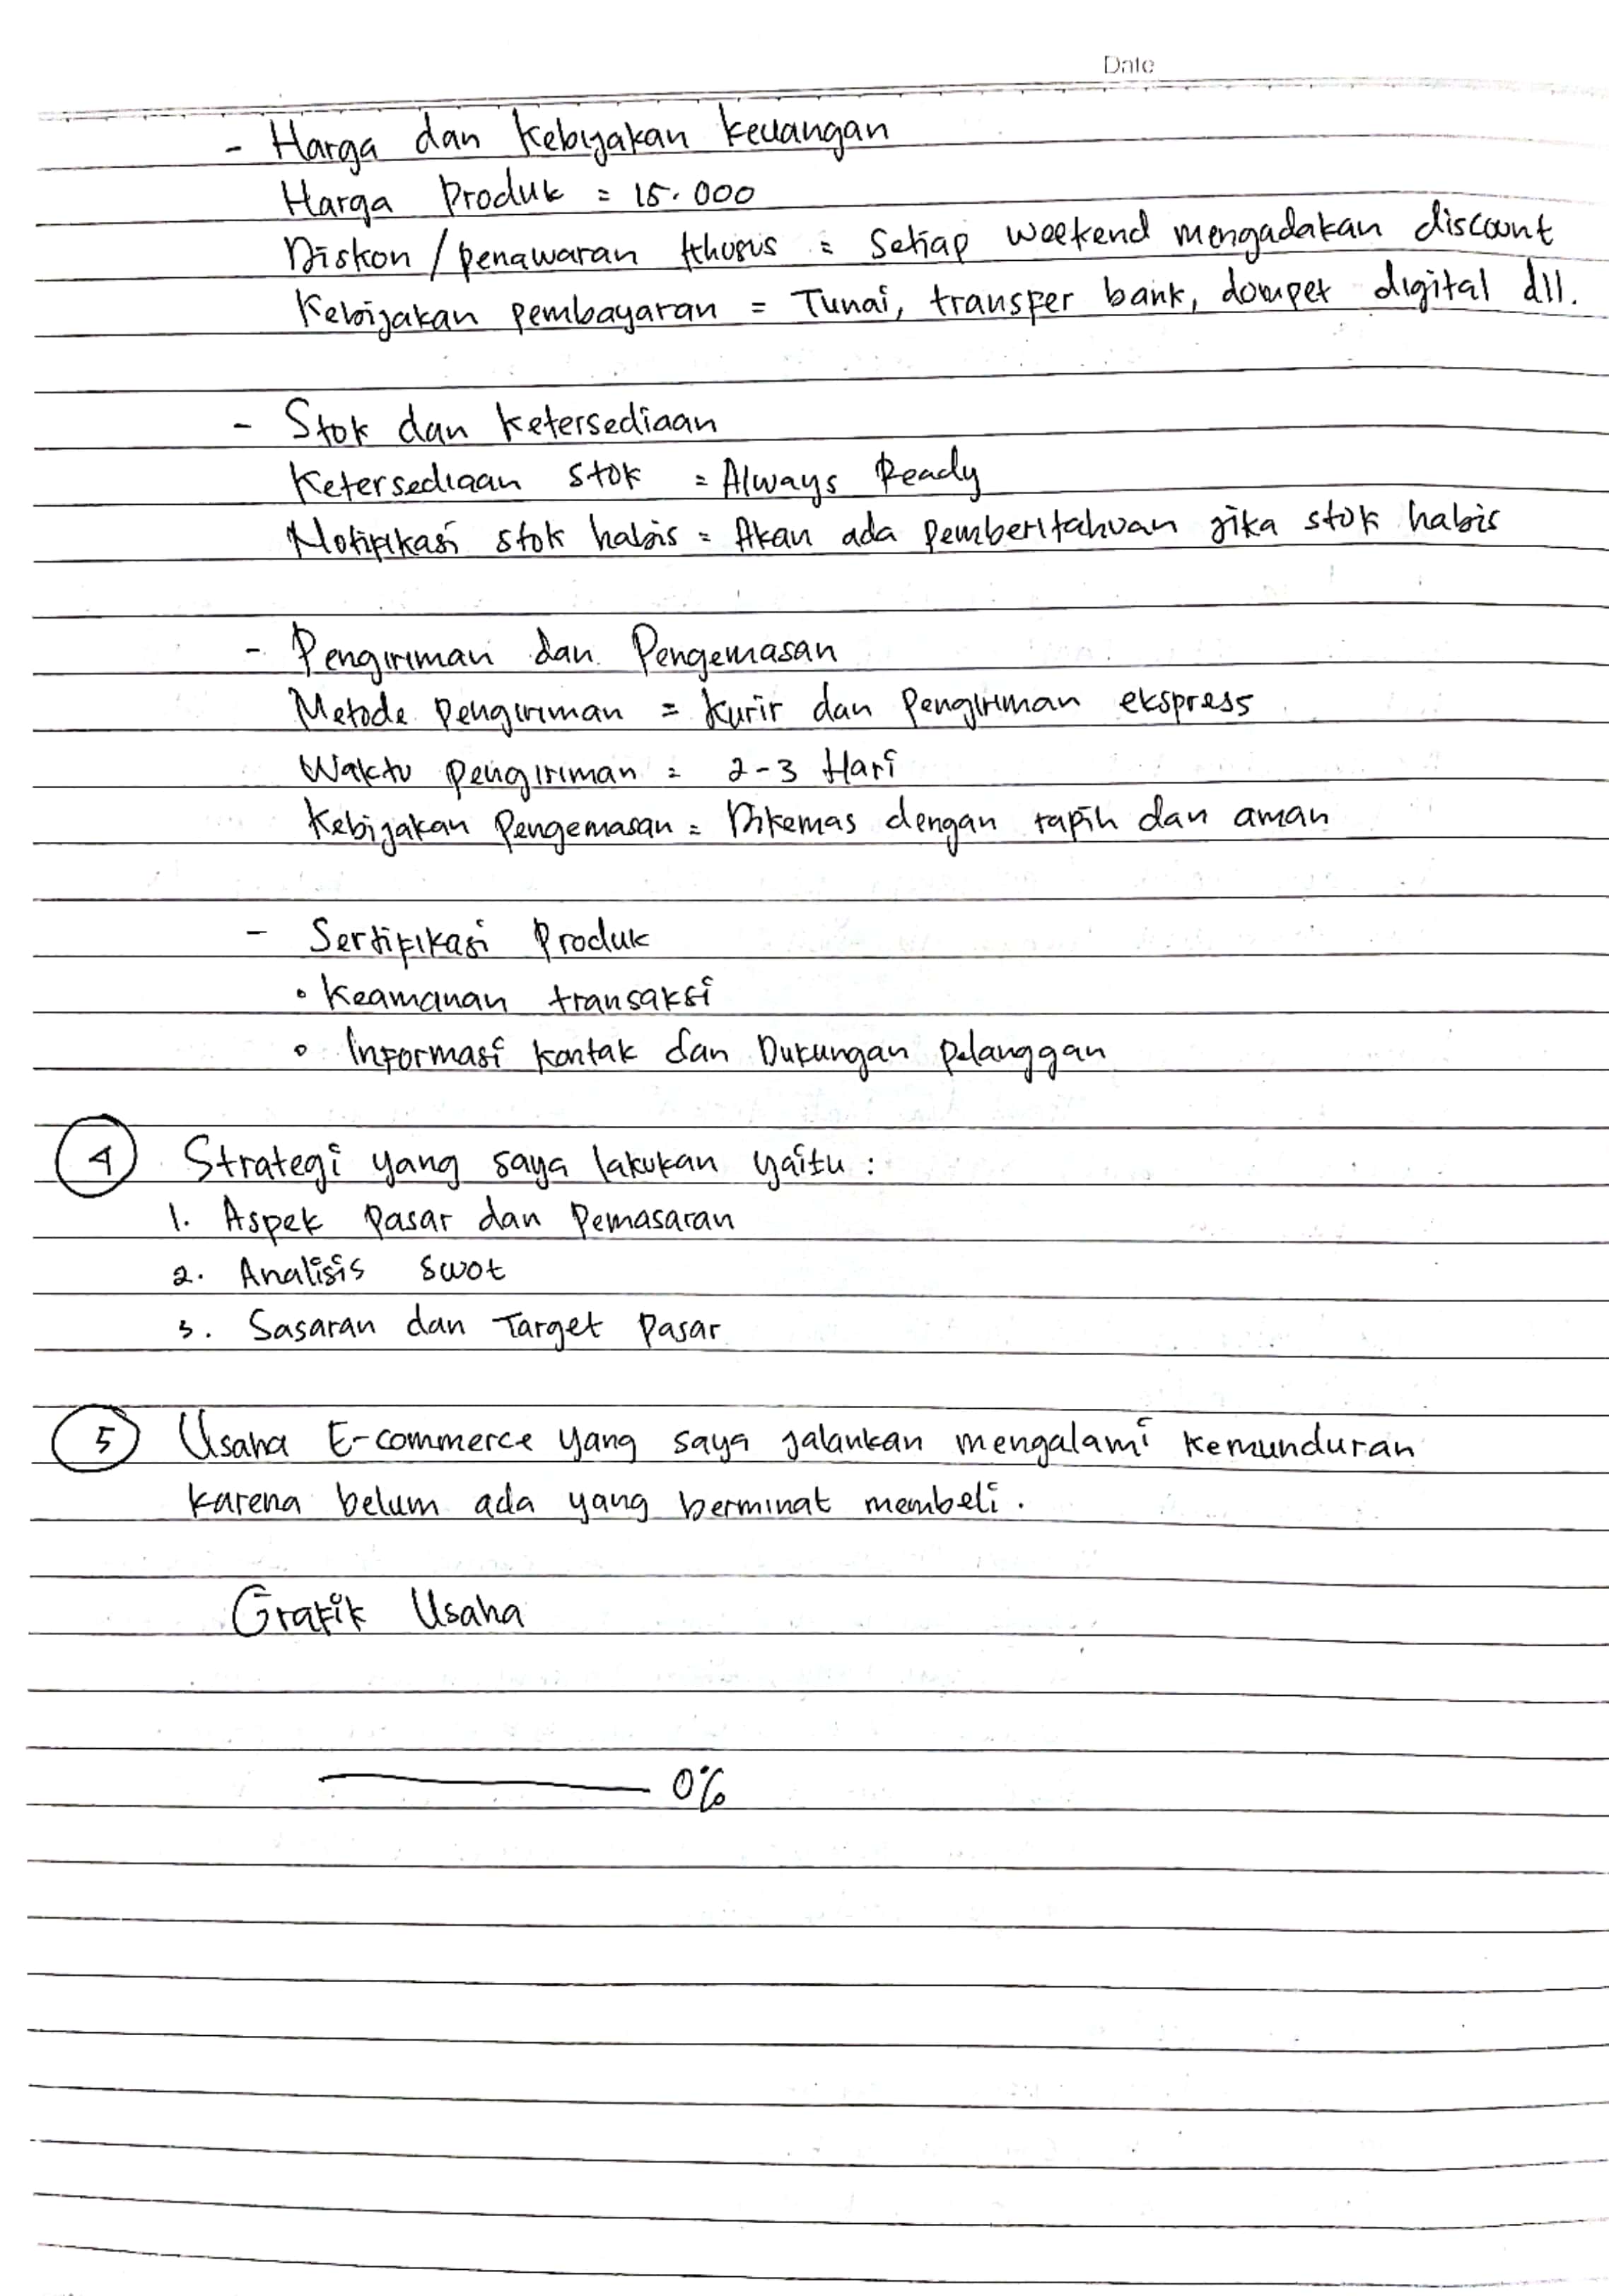 Date
- Harga dan Kebijakan keuangan
Harga Produk = 15.000
Diskon / penawaran khusus = Setiap weekend mengadakan discount
Kebijakan pembayaran = Tunai, transfer bank, dompet digital dll.
- Stok dan Ketersediaan
Ketersediaan stok = Always Ready
Notifikasi stok habis = Akan ada pemberitahuan jika stok habis
- Pengiriman dan Pengemasan
Metode pengiriman = Kurir dan Pengiriman ekspress
Waktu pengiriman = 2-3 Hari
Kebijakan Pengemasan = Dikemas dengan rapih dan aman
- Sertifikasi Produk
• Keamanan transaksi
• Informasi kontak dan Dukungan pelanggan
4 Strategi yang saya lakukan yaitu :
1. Aspek Pasar dan Pemasaran
2. Analisis Swot
3. Sasaran dan Target Pasar
5 Usaha E-commerce yang saya jalankan mengalami kemunduran
karena belum ada yang berminat membeli.
Grafik Usaha
0%